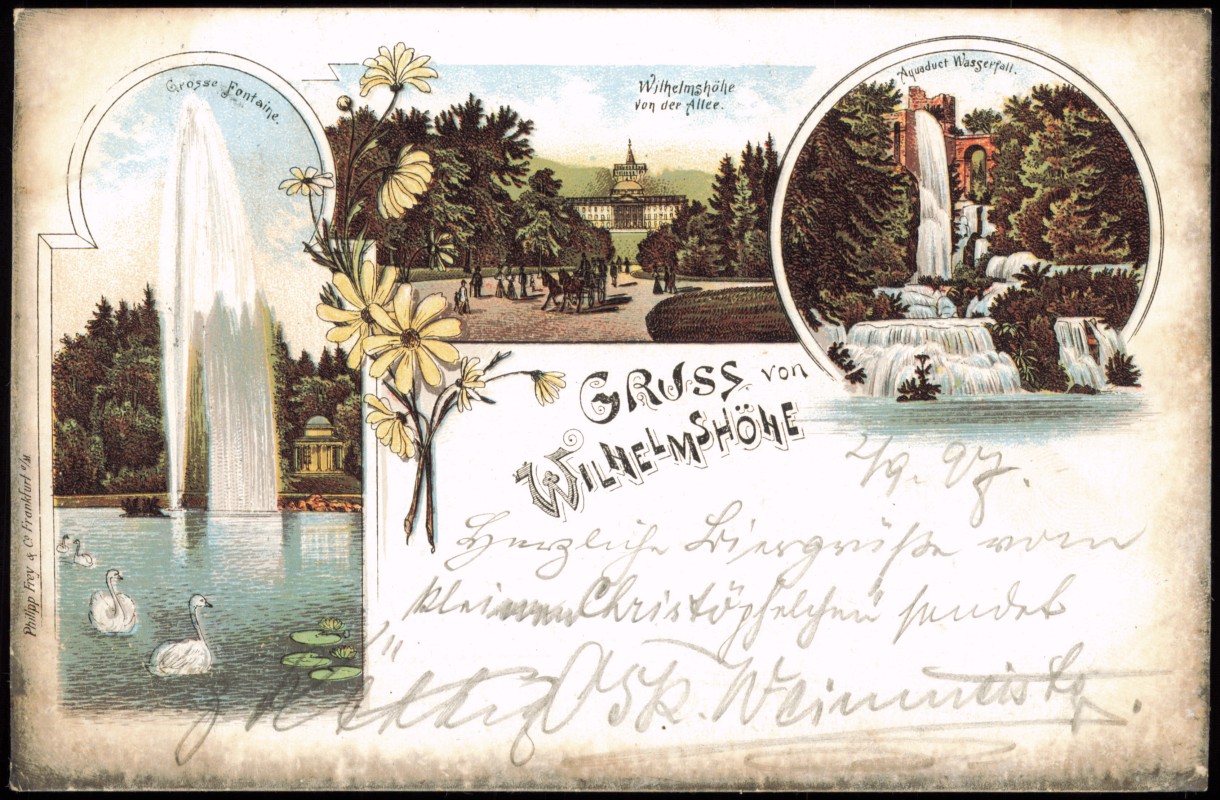 Grosse Fontaine.
Wilhelmshöhe
von der Allee.
Aquaduct Wasserfall.
GRUSS von
WILHELMSHÖHE
Philipp Frey & Co Frankfurt a/M
2/9. 97.
Herzliche Biergrüße vom
kleinen Christöphelchen sendet